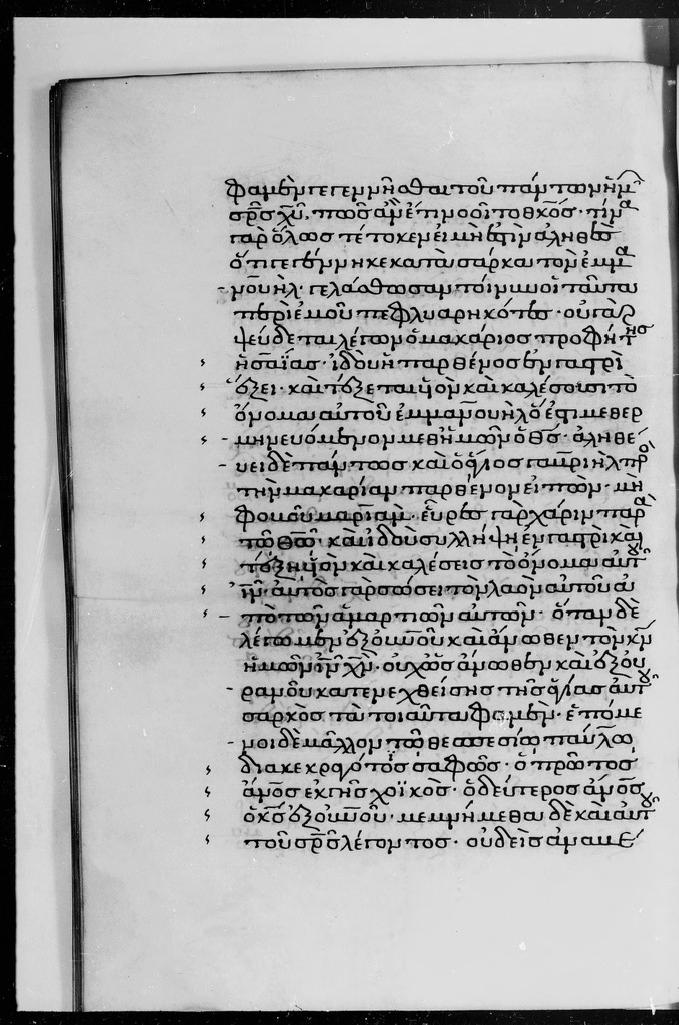 φαμὲν γεγεννῆσθαι τοῦ πάντων ἡμ
σρ̅ς χυ̅. πῶς ἂν ἔτι νοοῖτο θκός· τίν
γὰρ ὅλως τέτοκεν εἰ μὴ ἐστὶν ἀληθὲς
ὅτι γεγέννηκε κατὰ σάρκα τὸν ἐμμ
μουήλ· γελάσθωσαν τοίνυν οἱ ταῦτα
περὶ ἐμοῦ πεφλυαρηκότες· οὐ γὰρ
ψεύδεται λέγων ὁ μακάριος προφήτης
ἡσαΐας· ἰδοὺ ἡ παρθένος ἐν γαστρὶ
ἕξει· καὶ τέξεται υἱὸν καὶ καλέσουσι τὸ
ὄνομα αὐτοῦ ἐμμανουὴλ ὅ ἐστι μεθερ
μηνευόμενον μεθ' ἡμῶν ὁ θς̅· ἀληθεύ
ει δὲ πάντως καὶ ὁ ἅγιος γαβριὴλ πρ
τὴν μακαρίαν παρθένον εἰπών· μὴ
φοβοῦ μαριάμ· εὗρες γὰρ χάριν παρ
τῷ θω̅· καὶ ἰδοὺ συλλήψῃ ἐν γαστρὶ καὶ
τέξῃ υἱὸν καὶ καλέσεις τὸ ὄνομα αὐτοῦ
ιν̅· αὐτὸς γὰρ σώσει τὸν λαὸν αὐτοῦ ἀ
πὸ τῶν ἁμαρτιῶν αὐτῶν· ὅταν δὲ
λέγωμεν ἐξ ουνου καὶ ἄνωθεν τὸν κν̅
ἡμῶν ιν̅ χν̅· οὐχ ὡς ἄνωθεν καὶ ἐξ οὐ
ρανοῦ κατενεχθείσης τῆς ἁγίας αὐτοῦ
σαρκὸς τὰ τοιαῦτα φαμέν· ἑπόμε
νοι δὲ μᾶλλον τῷ θεσπεσίῳ παύλῳ
διακεκραγότος σαφῶς· ὁ πρῶτος
ανος ἐκ γῆς χοϊκός· ὁ δεύτερος ανος
ὁ κς̅ ἐξ ουνου· μεμνήμεθα δὲ καὶ αὐτοῦ
τοῦ σρ̅ς λέγοντος· οὐδεὶς ἀναβέ